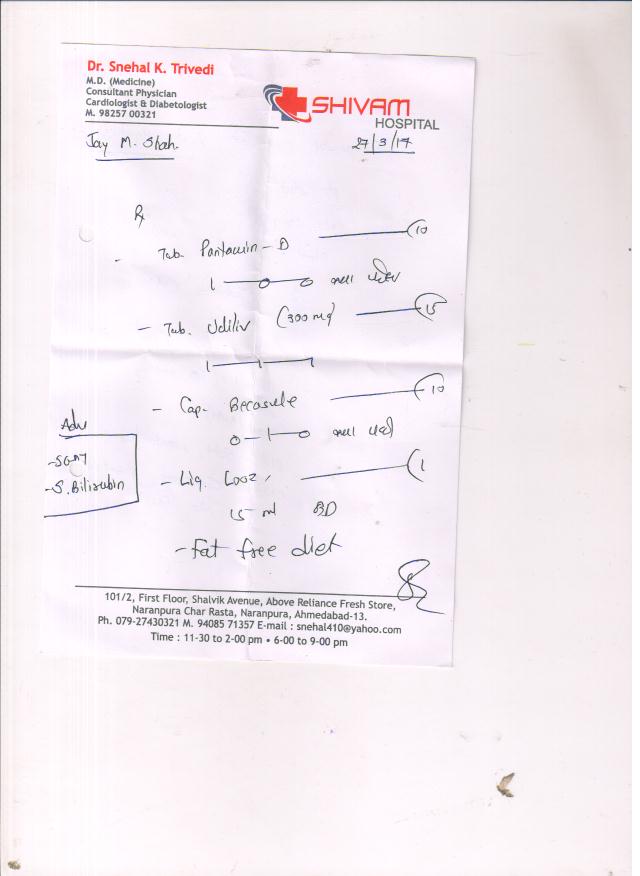 Dr. Snehal K. Trivedi
M.D. (Medicine)
Consultant Physician
Cardiologist & Diabetologist
M. 98257 00321
SHIVAM
HOSPITAL
Jay M. Shah.
27/3/17
Rx
- Tab. - D 10
1 — 0 — 0
- Tab. Udiliv (300 mg) 15
1 — 1 — 1
- Cap. Becosule 10
0 — 1 — 0
Adv
- SGPT
- S. Bilirubin
- Liq. 1
15 ml BD
- Fat free diet
101/2, First Floor, Shalvik Avenue, Above Reliance Fresh Store,
Naranpura Char Rasta, Naranpura, Ahmedabad-13.
Ph. 079-27430321 M. 94085 71357 E-mail : snehal410@yahoo.com
Time : 11-30 to 2-00 pm • 6-00 to 9-00 pm